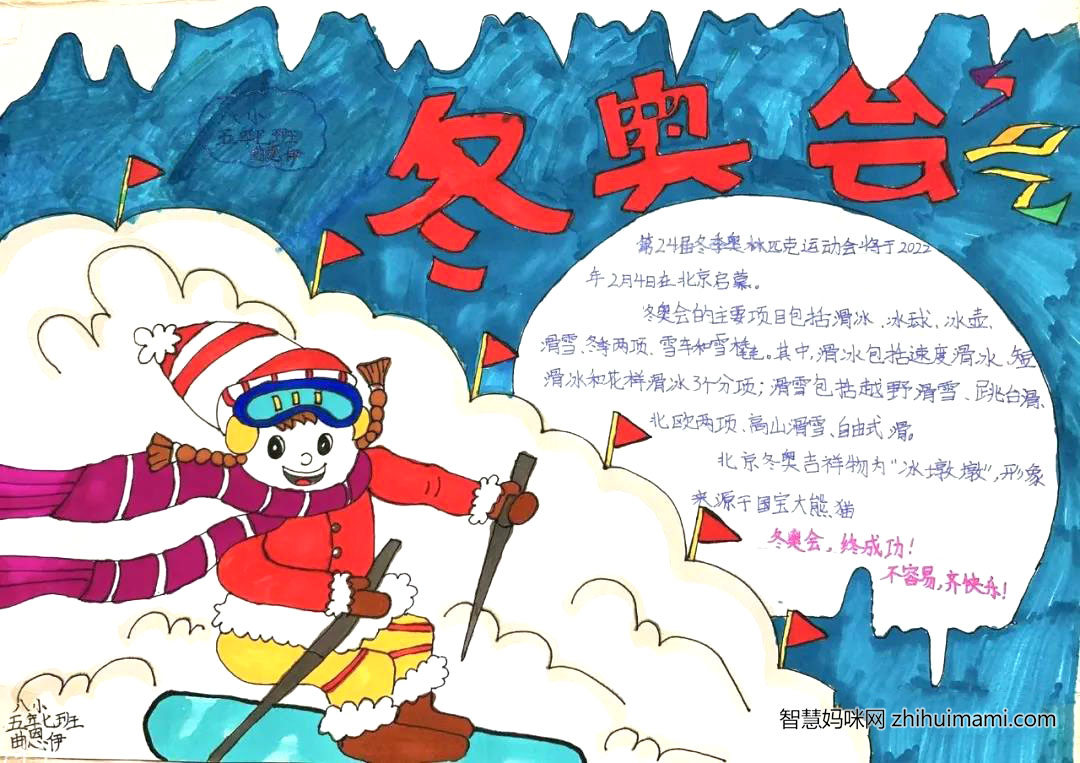 冬奥会
八小
五年七班
曲恩伊
第24届冬季奥林匹克运动会将于2022
年2月4日在北京启幕。
冬奥会的主要项目包括滑冰、冰球、冰壶、
滑雪、冬季两项、雪车和雪橇。其中,滑冰包括速度滑冰、短
滑冰和花样滑冰3个分项;滑雪包括越野滑雪、跳台滑、
北欧两项、高山滑雪、自由式滑。
北京冬奥吉祥物为"冰墩墩",形象
来源于国宝大熊猫
冬奥会,终成功!
不容易,齐快乐!
八小
五年七班
曲恩伊
智慧妈咪网 zhihuimami.com